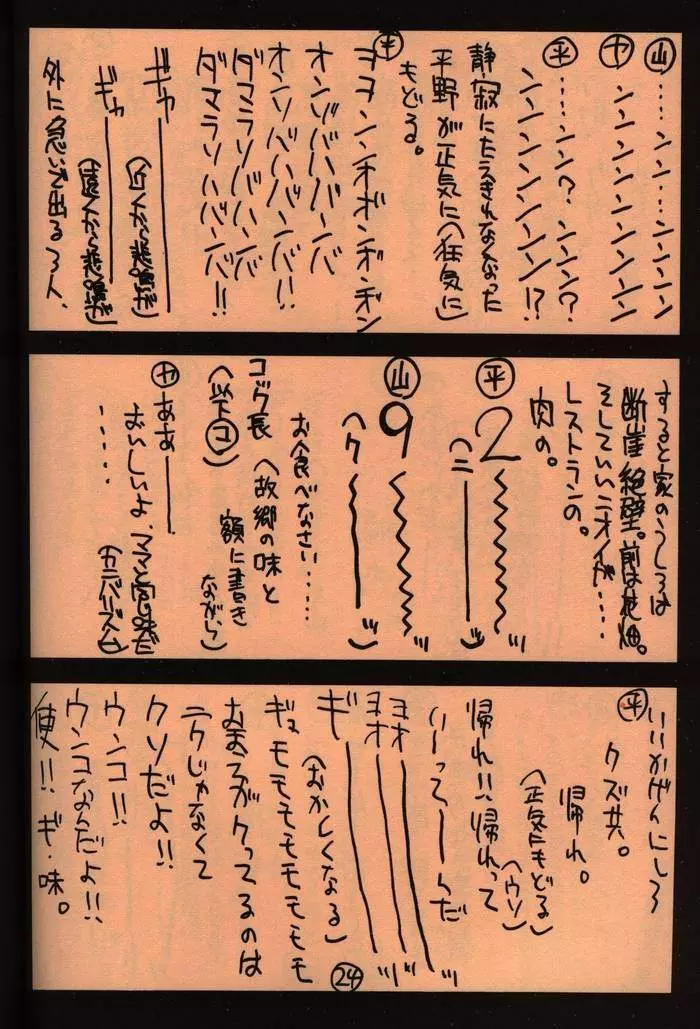 ㊤山 ……ンン…ンンンン
ヤ ンンンンンンンンン
平 …ンン? ンンン?
ンンンンンンンンン!?
静寂にたえきれなくなった
平野が正気に(狂気に)
もどる。
平 ヨヨンンオボンボンボン
オンゾババーバ
オンソバハバーンバ!!
ダマラソバハーンバ
ダマラソハバーンバ!!
ギャ―――
(近くから悲鳴が)
ギャ―――
(遠くから悲鳴が)
外に急いで出る3人、
すると家のうしろは
断崖絶壁。前は花畑。
そしていいニオイが……
レストランの。
肉の。
平 2〜〜〜ッ
(ニ―――ッ)
山 9〜〜〜ッ
(ク〜〜〜ッ)
お食べなさい……
コック長 (故郷の味と
額に書き
ながら)
(以下コ)
ヤ ああ――
おいしいよ、ママと宮味だ
(カニバリズム)
……
平 いいかげんにしろ
クズ共。
帰れ。
(正気にもどる)
(ウソ)
帰れ!!帰れって
いーってーーんだ
ヨオーーーッ
ヨオーーーッ
ギーーーッ
(おかしくなる)
ギュモモモモモモモ
おまえらがクってるのは
ニクじゃなくて
クソだよ!!
ウンコ!!
ウンコなんだよ!!
便!!ギ・味。
24